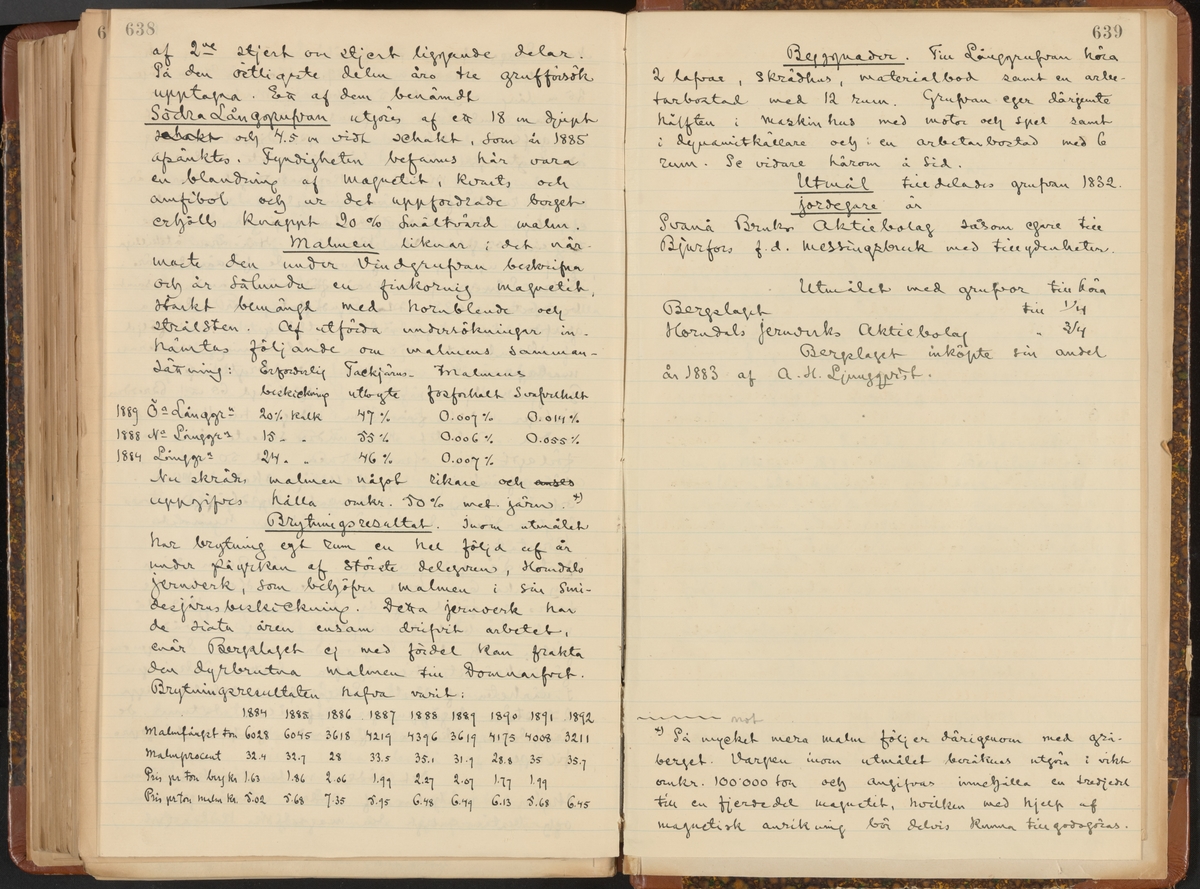 6 638
af 2ne stjert om stjert liggande delar.
På den östligaste delen äro tre grufförsök
upptagna. Ett af dem benämdt
Södra Långgrufvan utgöres af ett 18 m djupt
schakt och 4.5 m vidt schakt, som år 1885
afsänktes. Fyndigheten befanns här vara
en blandning af magnetit, kvarts och
amfibol och ur det uppfordrade berget
erhölls knappt 20% smältvärd malm.
Malmen liknar i det när-
maste den under Vindgrufvan beskrifna
och är sålunda en finkornig magnetit,
starkt bemängd med hornblende och
strålsten. Af utförda undersökningar in-
hämtas följande om malmens samman-
sättning: Erforderlig Tackjärns- Malmens
beskickning utbyte fosforhalt Svafvelhalt
1889 Öa Långgrn 20% kalk 47% 0.007% 0.014%
1888 Na Långgrn 15 " " 55% 0.006% 0.055%
1884 Långgrn 24 " " 46% 0.007%
Nu skrädes malmen något rikare och anses
uppgifves hålla omkr. 50% met. järn. *)
Brytningsresultat. Inom utmålet
har brytning egt rum en hel följd af år
under påyrkan af största delegaren, Horndals
jernverk, som behöfver malmen i sin smi-
desjärnsbeskickning. Detta jernverk har
de sista åren ensam drifvit arbetet,
enär Bergslaget ej med fördel kan frakta
den dyrbrutna malmen till Domnarfvet.
Brytningsresultaten hafva varit:
1884 1885 1886 1887 1888 1889 1890 1891 1892
Malmfångst ton 6028 6045 3618 4219 4396 3619 4175 4008 3211
Malmprocent 32.4 32.7 28 33.5 35.1 31.9 28.8 35 35.7
Pris per ton berg kr 1.63 1.86 2.06 1.99 2.27 2.07 1.77 1.99
Pris per ton malm kr. 5.02 5.68 7.35 5.95 6.48 6.49 6.13 5.68 6.45
639
Byggnader. Till Långgrufvan höra
2 lafvar, skrädhus, materialbod samt en arbe-
tarbostad med 12 rum. Grufvan eger därjemte
hälften i maskinhus med motor och spel samt
i dynamitkällare och i en arbetarbostad med 6
rum. Se vidare härom å sid.
Utmål tilldelades grufvan 1832.
Jordegare är
Svanå Bruks Aktiebolag såsom egare till
Bjurfors f.d. messingsbruk med tillydenheter.
Utmålet med grufvor tillhöra
Bergslaget till 1/4
Horndals Jernverks Aktiebolag " 3/4
Bergslaget inköpte sin andel
år 1883 af A. H. Ljungqvist.
not
*) På mycket mera malm följer därigenom med grå-
berget. Varpen inom utmålet beräknas utgöra i vikt
omkr. 100.000 ton och angifvas innehålla en tredjedel
till en fjerdedel magnetit, hvilken med hjelp af
magnetisk anrikning bör delvis kunna tillgodogöras.